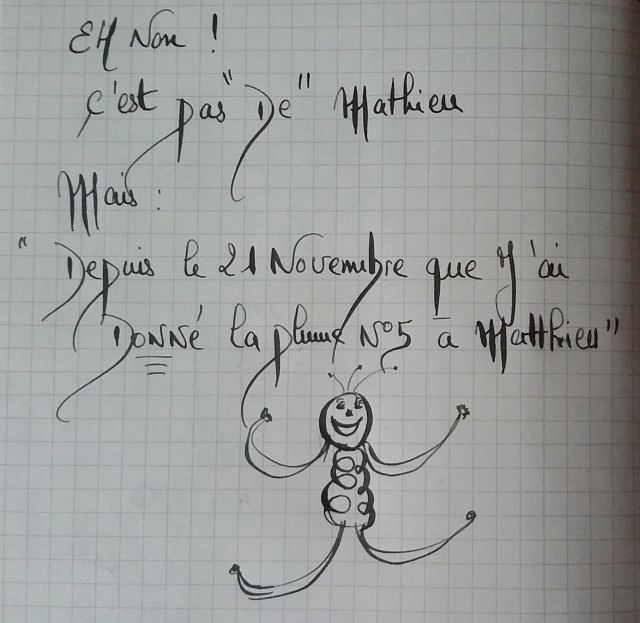 EH Non !
c'est pas "De" Mathieu
Mais :
"Depuis le 21 Novembre que J'ai
DONNÉ la plume N°5 à Matthieu"